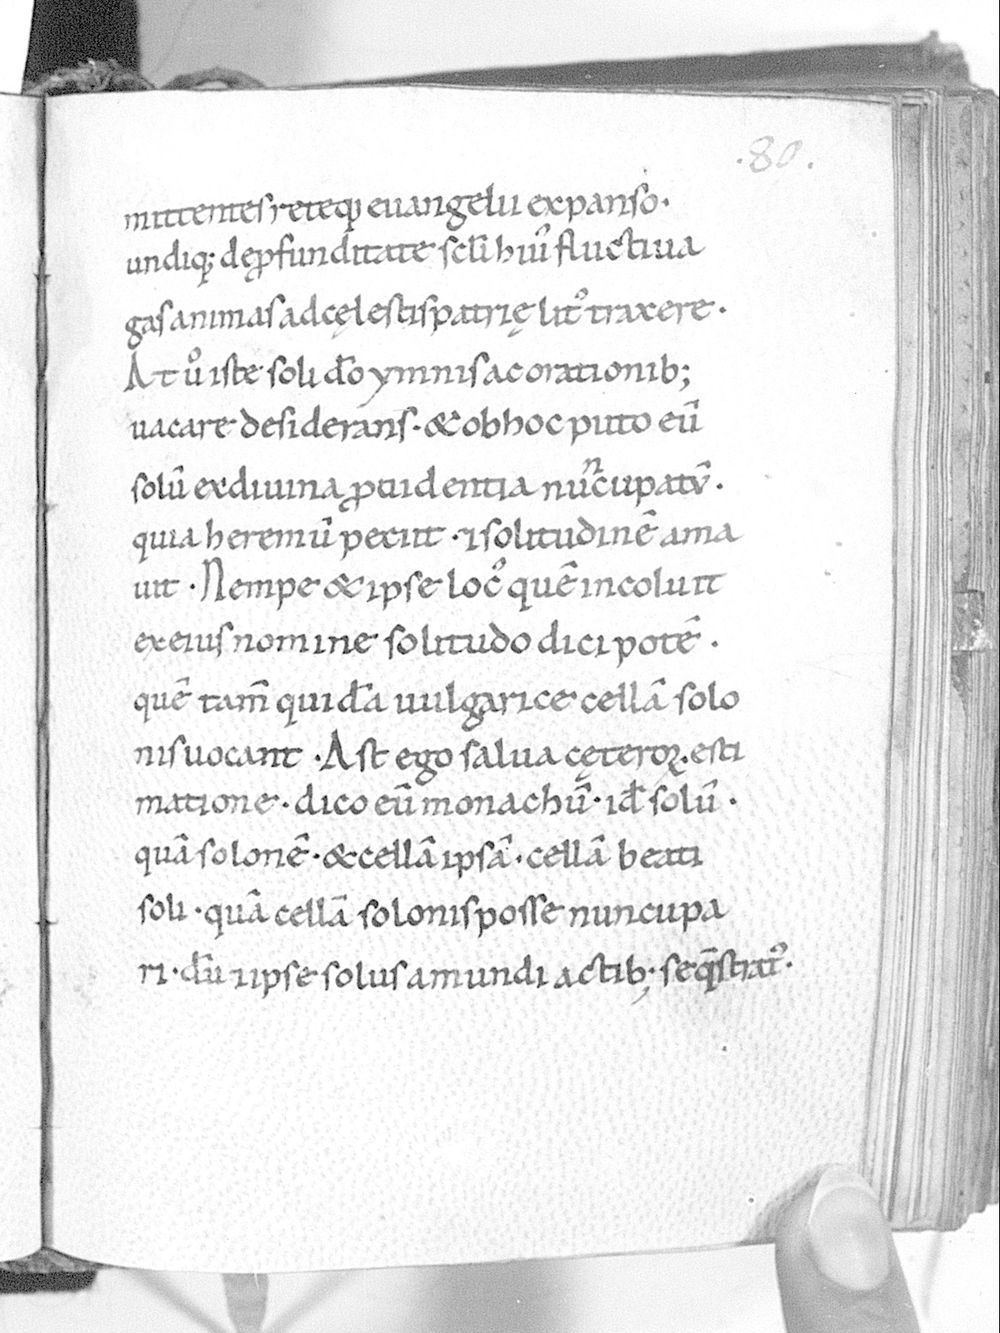 .80.
mittentes reteq; euangelii expanso.
undiq; de ꝓfunditate scl̄i hui᷒ fluctiua
gas animas ad cęlestis patrię lit᷒ traxere.
At u᷒o iste soli dō ymnis ac orationib;
uacare desiderans. & ob hoc puto eū
solū ex diuina ꝓuidentia nūcupatū.
quia heremū petiit. ⁊ solitudinē ama
uit. Nempe & ipse loc᷒ quē incoluit
ex eius nomine solitudo dici potē.
quē tam̄ quidā uulgarice cellā solo
nis uocant. Ast ego salua cęteroꝝ esti
matione. dico eū monachū. id̄ solū.
quā solonē. & cellā ipsā. cellā beati
soli. quā cellā solonis posse nuncupa
ri. dū ⁊ ipse solus a mundi actib; seq̄strat᷒.